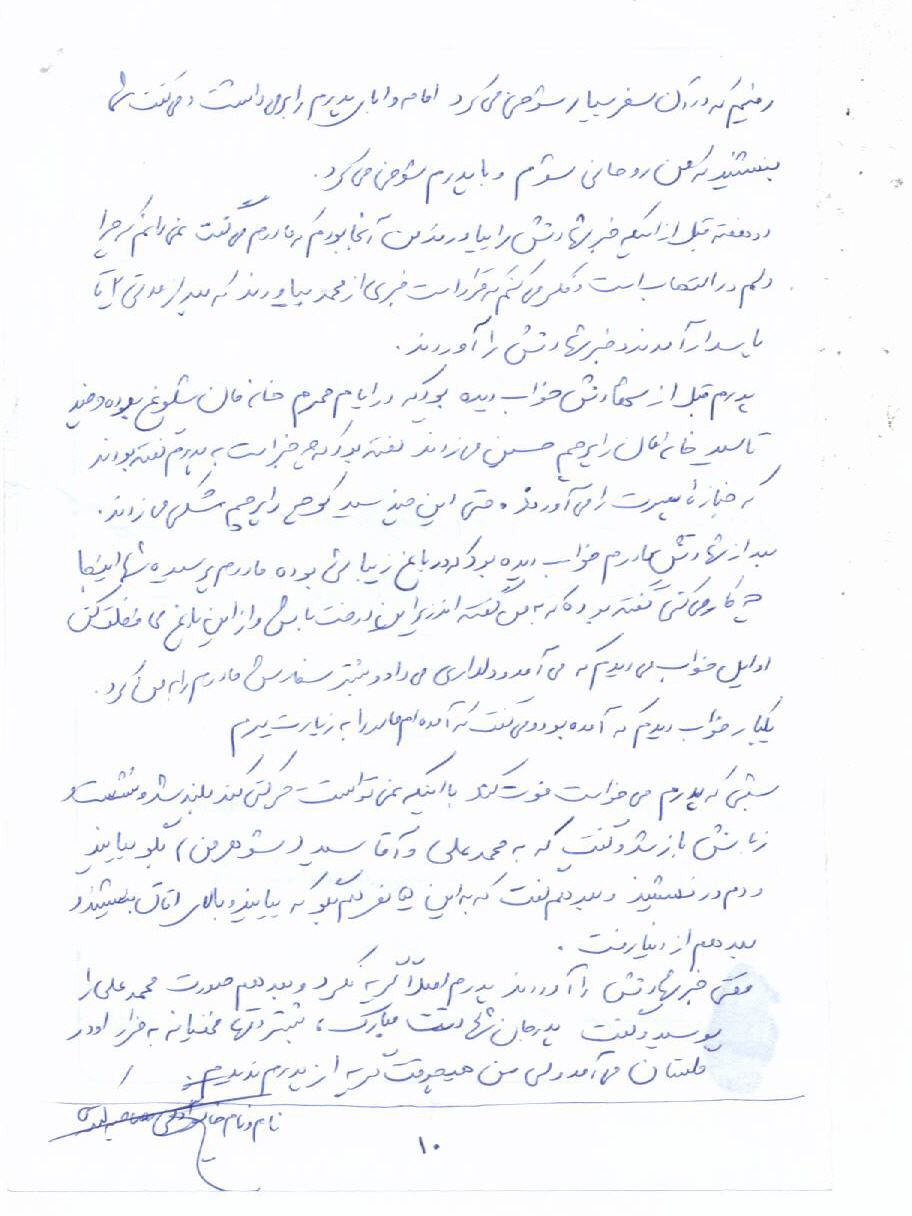 رفتیم که در آن سفر بسیار شوخی می کرد امامه و ابای پدرم را بر می داشت و می گفت
بنشینید که من روحانی شوم و با پدرم شوخی می کرد.
دو هفته قبل از اینکه خبر شهادتش را بیاورند من آنجا بودم که مادرم می گفت نمی دانم که چرا
دلم در التهاب است و فکر می کنم که قرار است خبری از محمد بیاورند که بعد از مدتی ۲ تا
پاسدار آمدند و خبر شهادتش را آوردند.
پدرم قبل از شهادتش خواب دیده بود که در ایام محرم خانه مان شلوغ بوده و چند
تا سید خانه امان را پرچم حسین می زدند گفته بود که چه خبر است به پدرم گفته بودند
که جنازه پسرت را می آورند و حتی این چند سید کوچه را پرچم مشکی می زدند.
بعد از شهادتش مادرم خواب دیده بود که در باغ زیبایی بوده مادرم پرسیده شما اینجا
چه کار می کنی گفته بود که به من گفته اند زیر این درخت باش و از این باغ محافظت کن
اوایل خواب می دیدم که می آمد و دلداری می داد و بیشتر سفارش مادرم را به من می کرد.
یکبار خواب دیدم که آمده بود و می گفت که آمده ام مادر را به زیارت ببرم
شبی که پدرم می خواست فوت کند با اینکه نمی توانست حرکتی کند بلند شد و نشست و
زبانش باز شد و گفت که به محمد علی و آقا سید (شوهر من) بگو بیایند
و دم در بنشینند و بعد هم گفت که به این ۵ نفر هم بگو که بیایند و بالای اتاق بنشینند و
بعد هم از دنیا رفت.
وقتی خبر شهادتش را آوردند پدرم اصلاً گریه نکرد و بعد هم صورت محمد علی را
بوسید و گفت پدر جان شهادتت مبارک، بیشتر وقتها مخفیانه به مزار او در
گلستان می آمد ولی من هیچوقت گریه از پدرم ندیدم.
نام و نام خانوادگی
۱۰